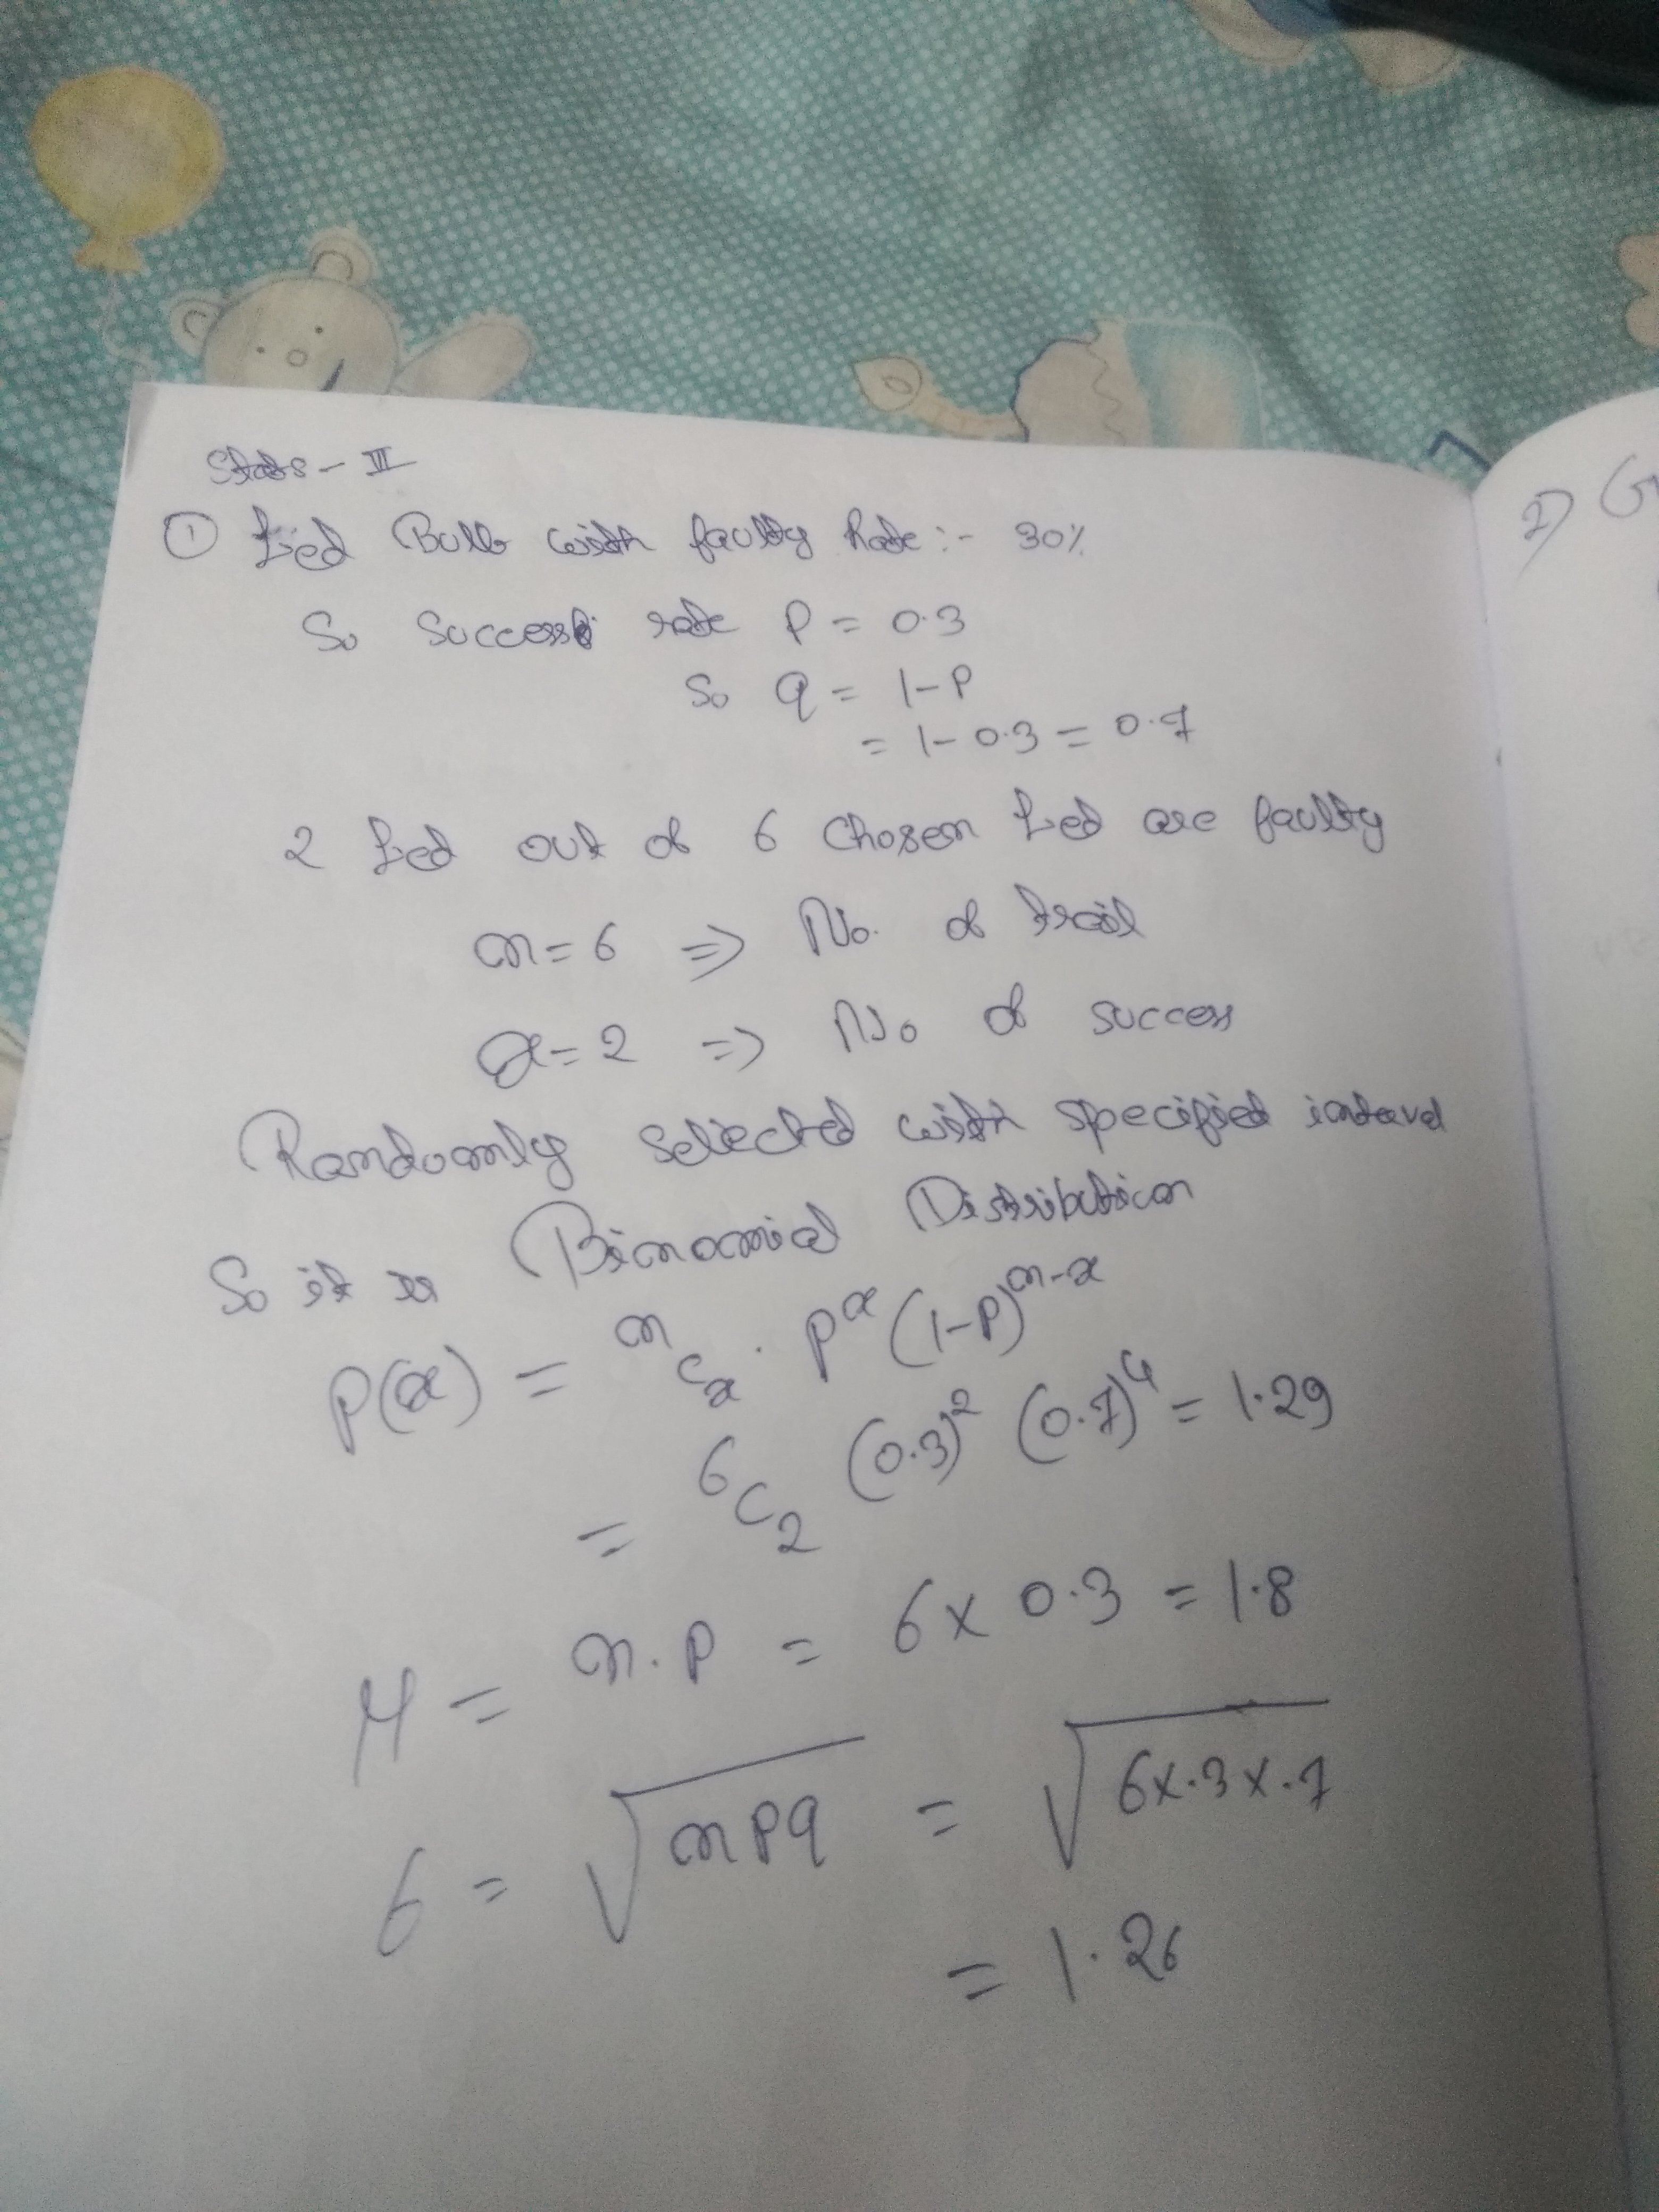 Stats - III
① Led Bulb with faulty Rate :- 30%
So success rate P = 0.3
So q = 1-P
= 1-0.3 = 0.7
2 Led out of 6 chosen Led are faulty
n = 6 => No. of trail
x = 2 => No of success
Randomly selected with specified interval
So it is Binomial Distribution
P(x) = ⁿCₓ . pˣ (1-P)ⁿ⁻ˣ
= ⁶C₂ (0.3)² (0.7)⁴ = 1.29
μ = n.p = 6 x 0.3 = 1.8
σ = √npq = √6x.3x.7
= 1.26
2) G